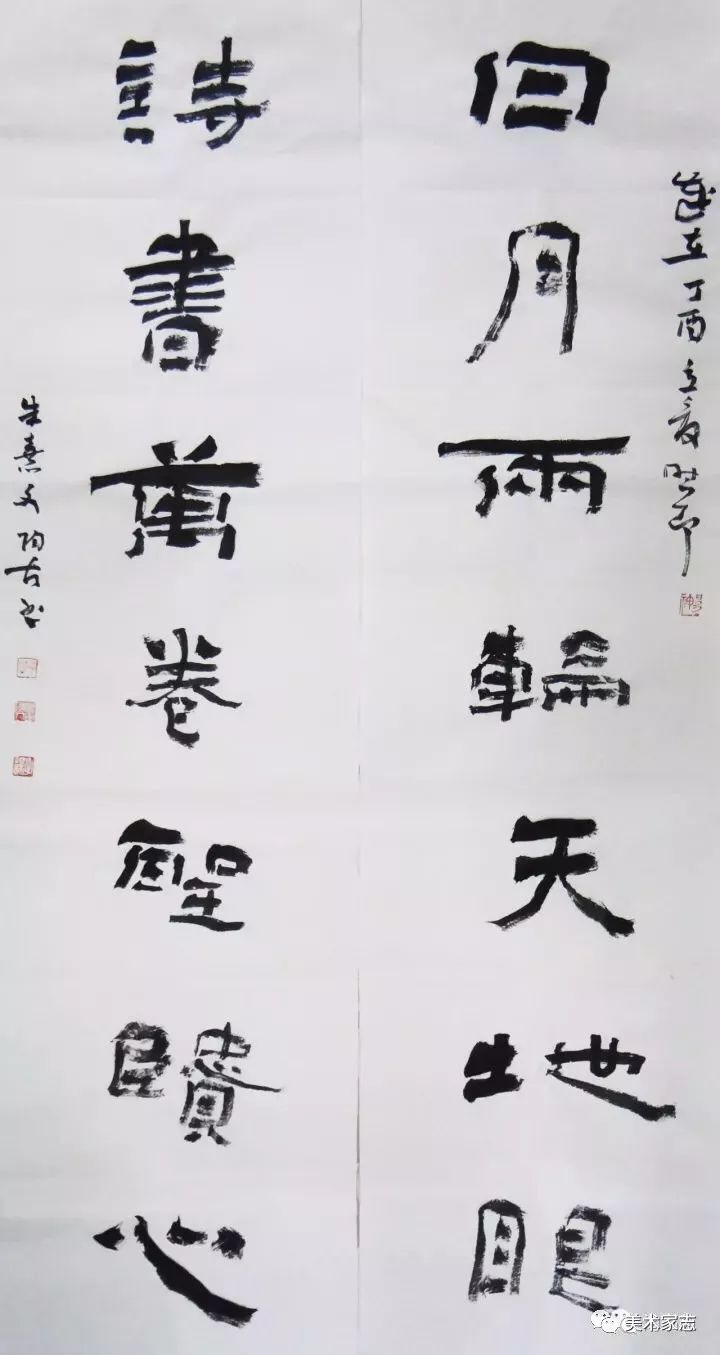 歲在丁酉立夏時節
日月兩輪天地眼
詩書萬卷聖賢心
朱熹古书
美术家志